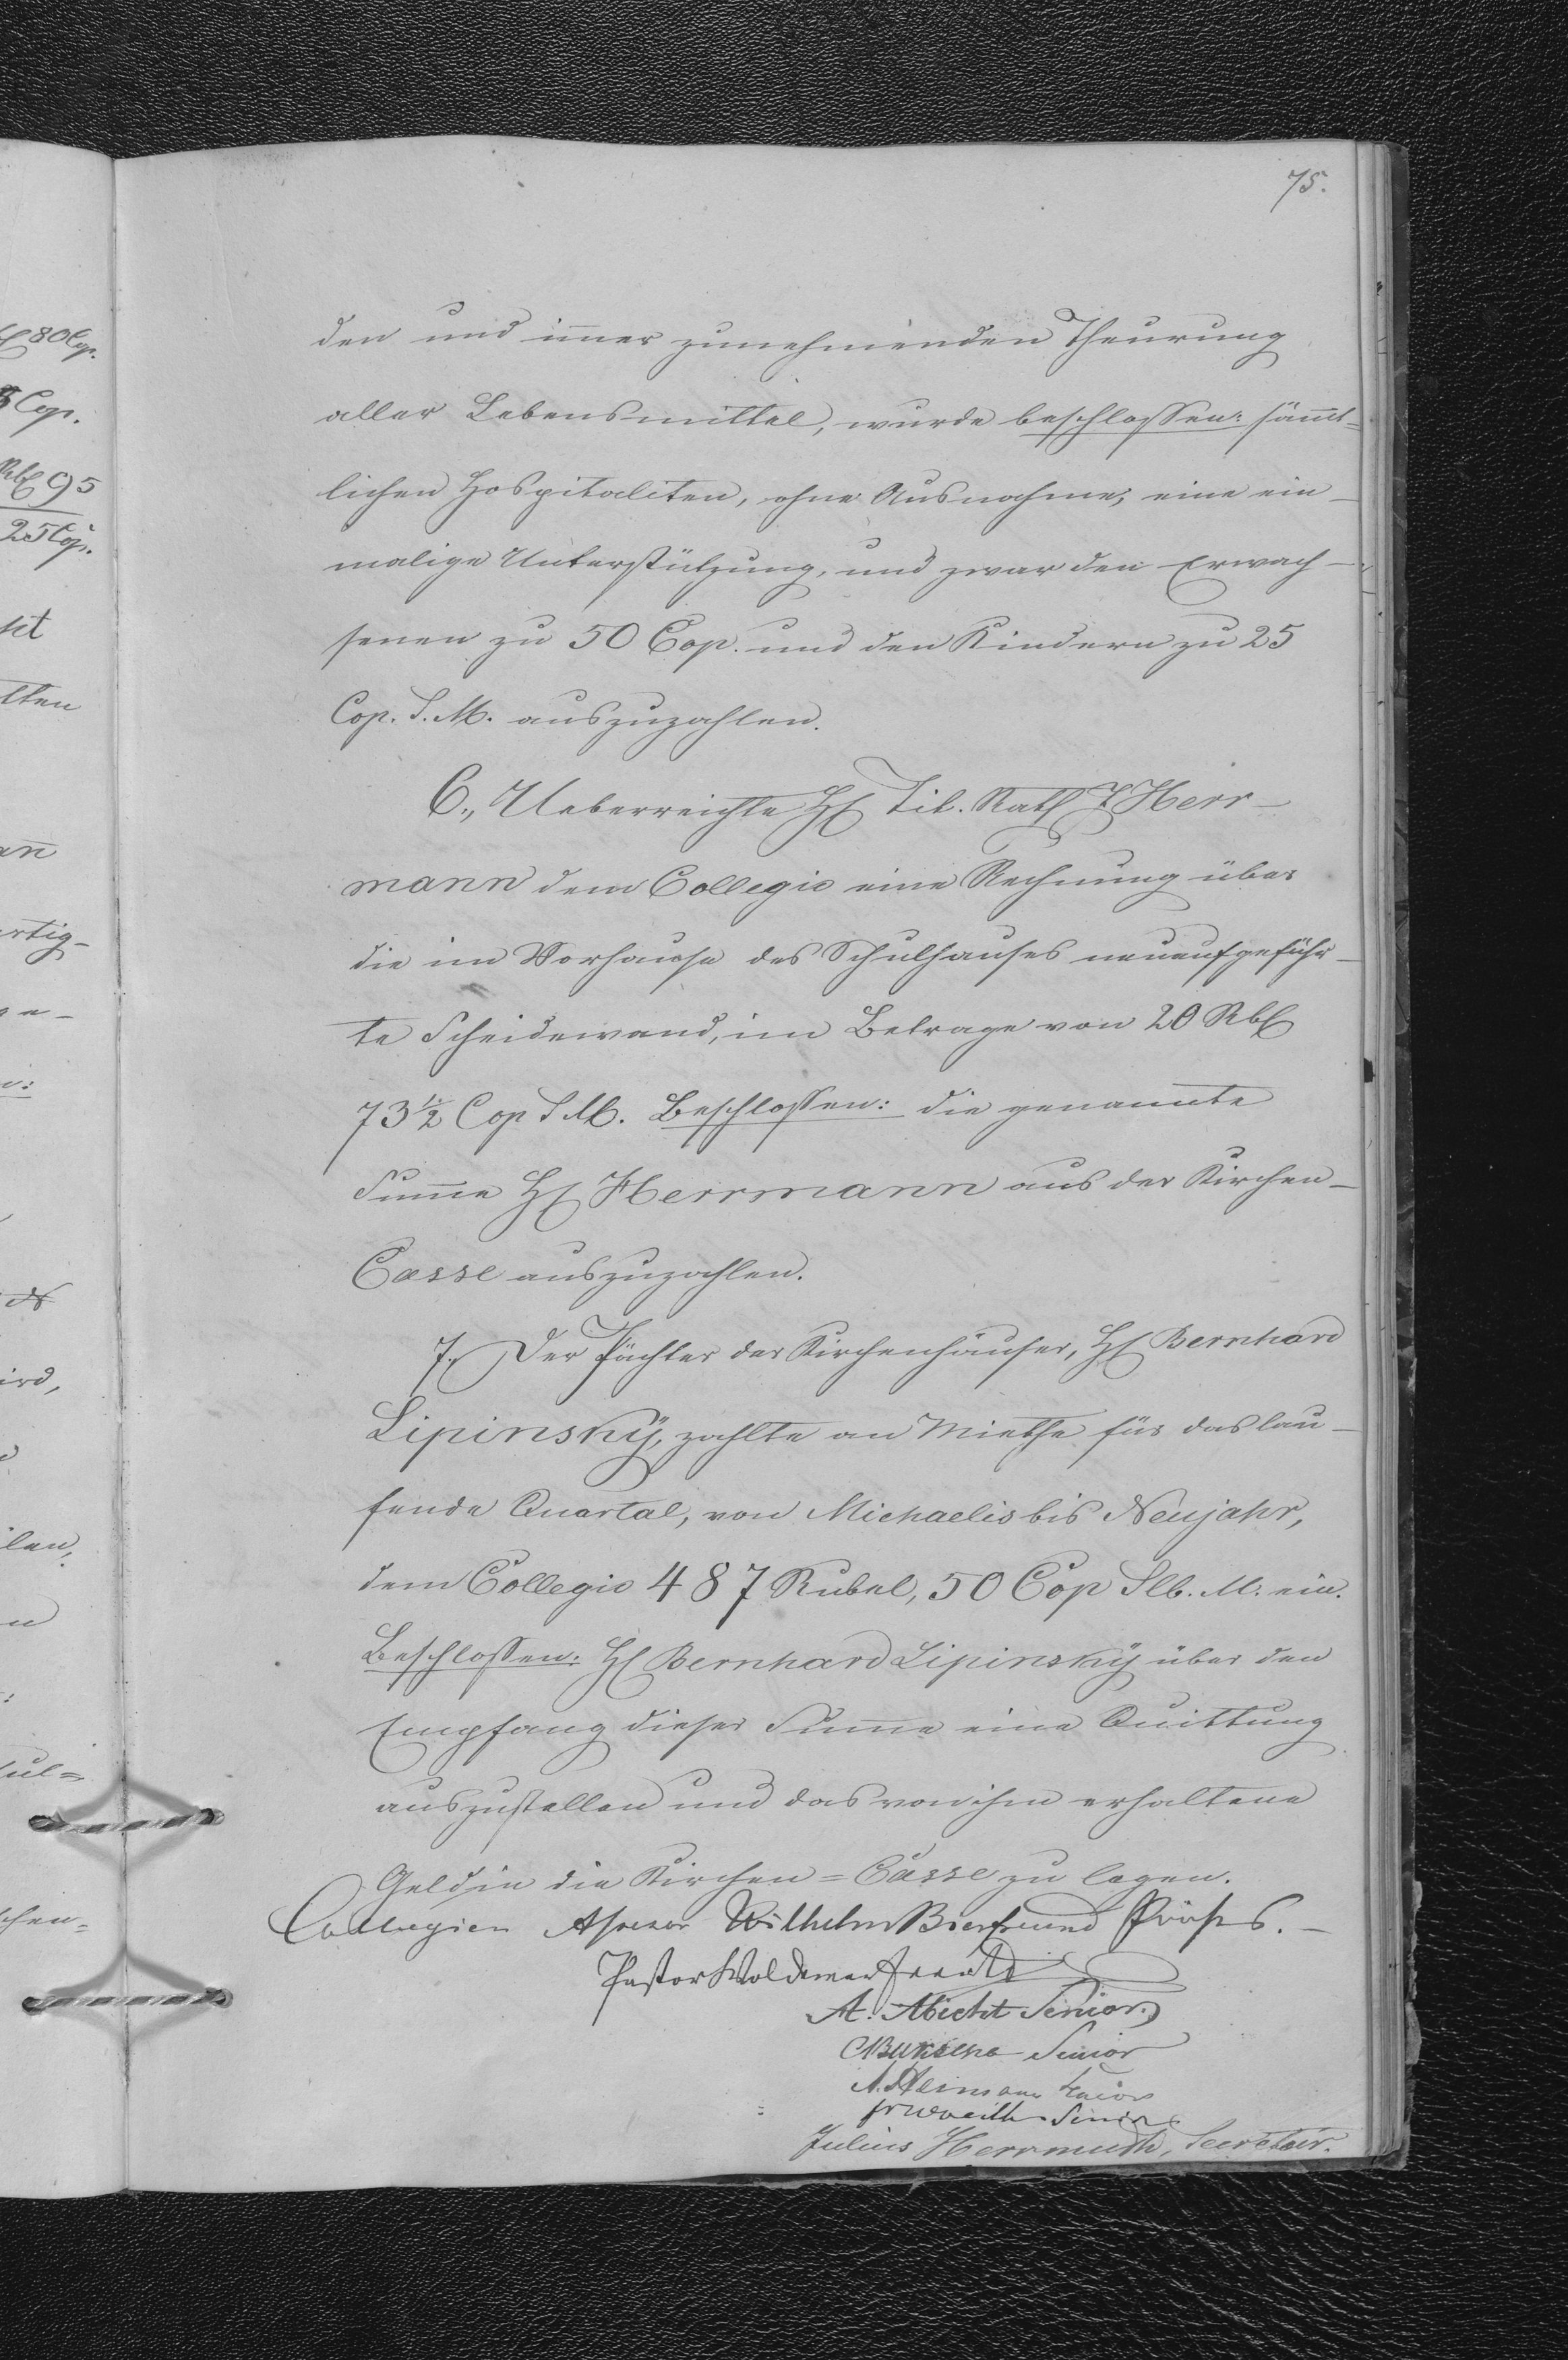 75.
den und immer zunehmenden Theurung
aller Lebensmittel, wurde beschlossen: sämmt-
lichen Hospitaliten, ohne Ausnahme, eine ein-
malige Unterstützung, und zwar den Erwach-
senen zu 50 Cop. und den Kindern zu 25
Cop. S. M. auszuzahlen.
6., Ueberreichte H Tit. Rath J Herr-
mann dem Collegio eine Rechnung über
die im Vorhause des Schulhauses neuaufgeführ-
te Scheidewand, im Betrage von 20 Rbl
73 1/2 Cop S M. Beschlossen: die genannte
Summe H Herrmann aus der Kirchen-
Casse auszuzahlen.
7., Der Pächter der Kirchenhäuser, H Bernhard
Lipinsky, zahlte an Miethe für das lau-
fende Quartal, von Michaelis bis Neujahr,
dem Collegio 487 Rubel, 50 Cop Slb. M. ein.
Beschlossen: H Bernhard Lipinsky über den
Empfang dieser Summe eine Quittung
auszustellen und das von ihm erhaltene
Geld in die Kirchen=Casse zu legen.
Collegien Assessor Wilhelm Bierfreund Präses.
Pastor Woldemar
A. Abicht Senior
Senior
Senior
Julius Herrmuth, Secretair.
80 Cop.
Cop.
Rbl 95
25 Cop.